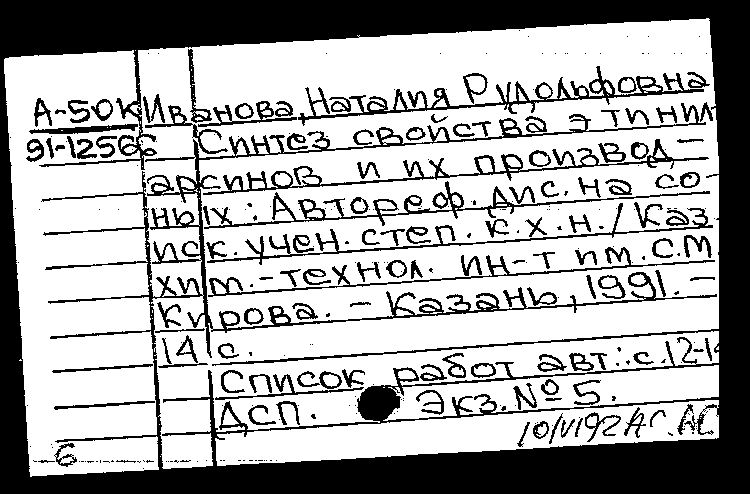 А-50К Иванова, Наталия Рудольфовна
91-12566 Синтез свойства этинил
арсинов и их производ-
ных : Автореф. дис. на со-
иск. учен. степ. к.х.н. / Каз.
хим.-технол. ин-т им. С.М
Кирова. - Казань, 1991. -
14 с.
Список работ авт.: с. 12-14
ДСП. Экз. № 5.
10/VI92 АС. АС
6